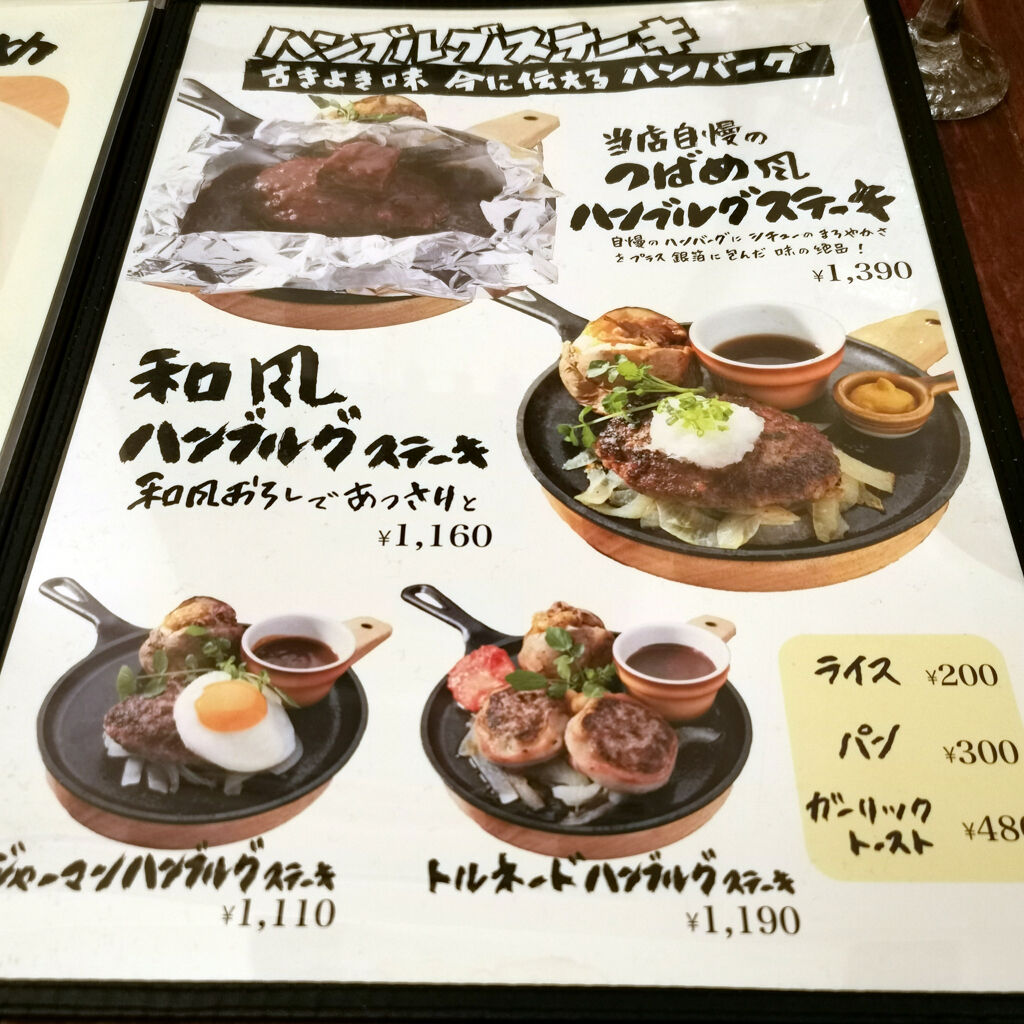 ハンブルグステーキ
古きよき味 今に伝える ハンバーグ
当店自慢の
つばめ風
ハンブルグステーキ
自慢のハンバーグに シチューのまろやかさ
をプラス 銀箔に包んだ 味の絶品!
¥1,390
和風
ハンブルグステーキ
和風おろしであっさりと
¥1,160
ジャーマンハンブルグステーキ
¥1,110
トルネードハンブルグステーキ
¥1,190
ライス ¥200
パン ¥300
ガーリック
トースト ¥480